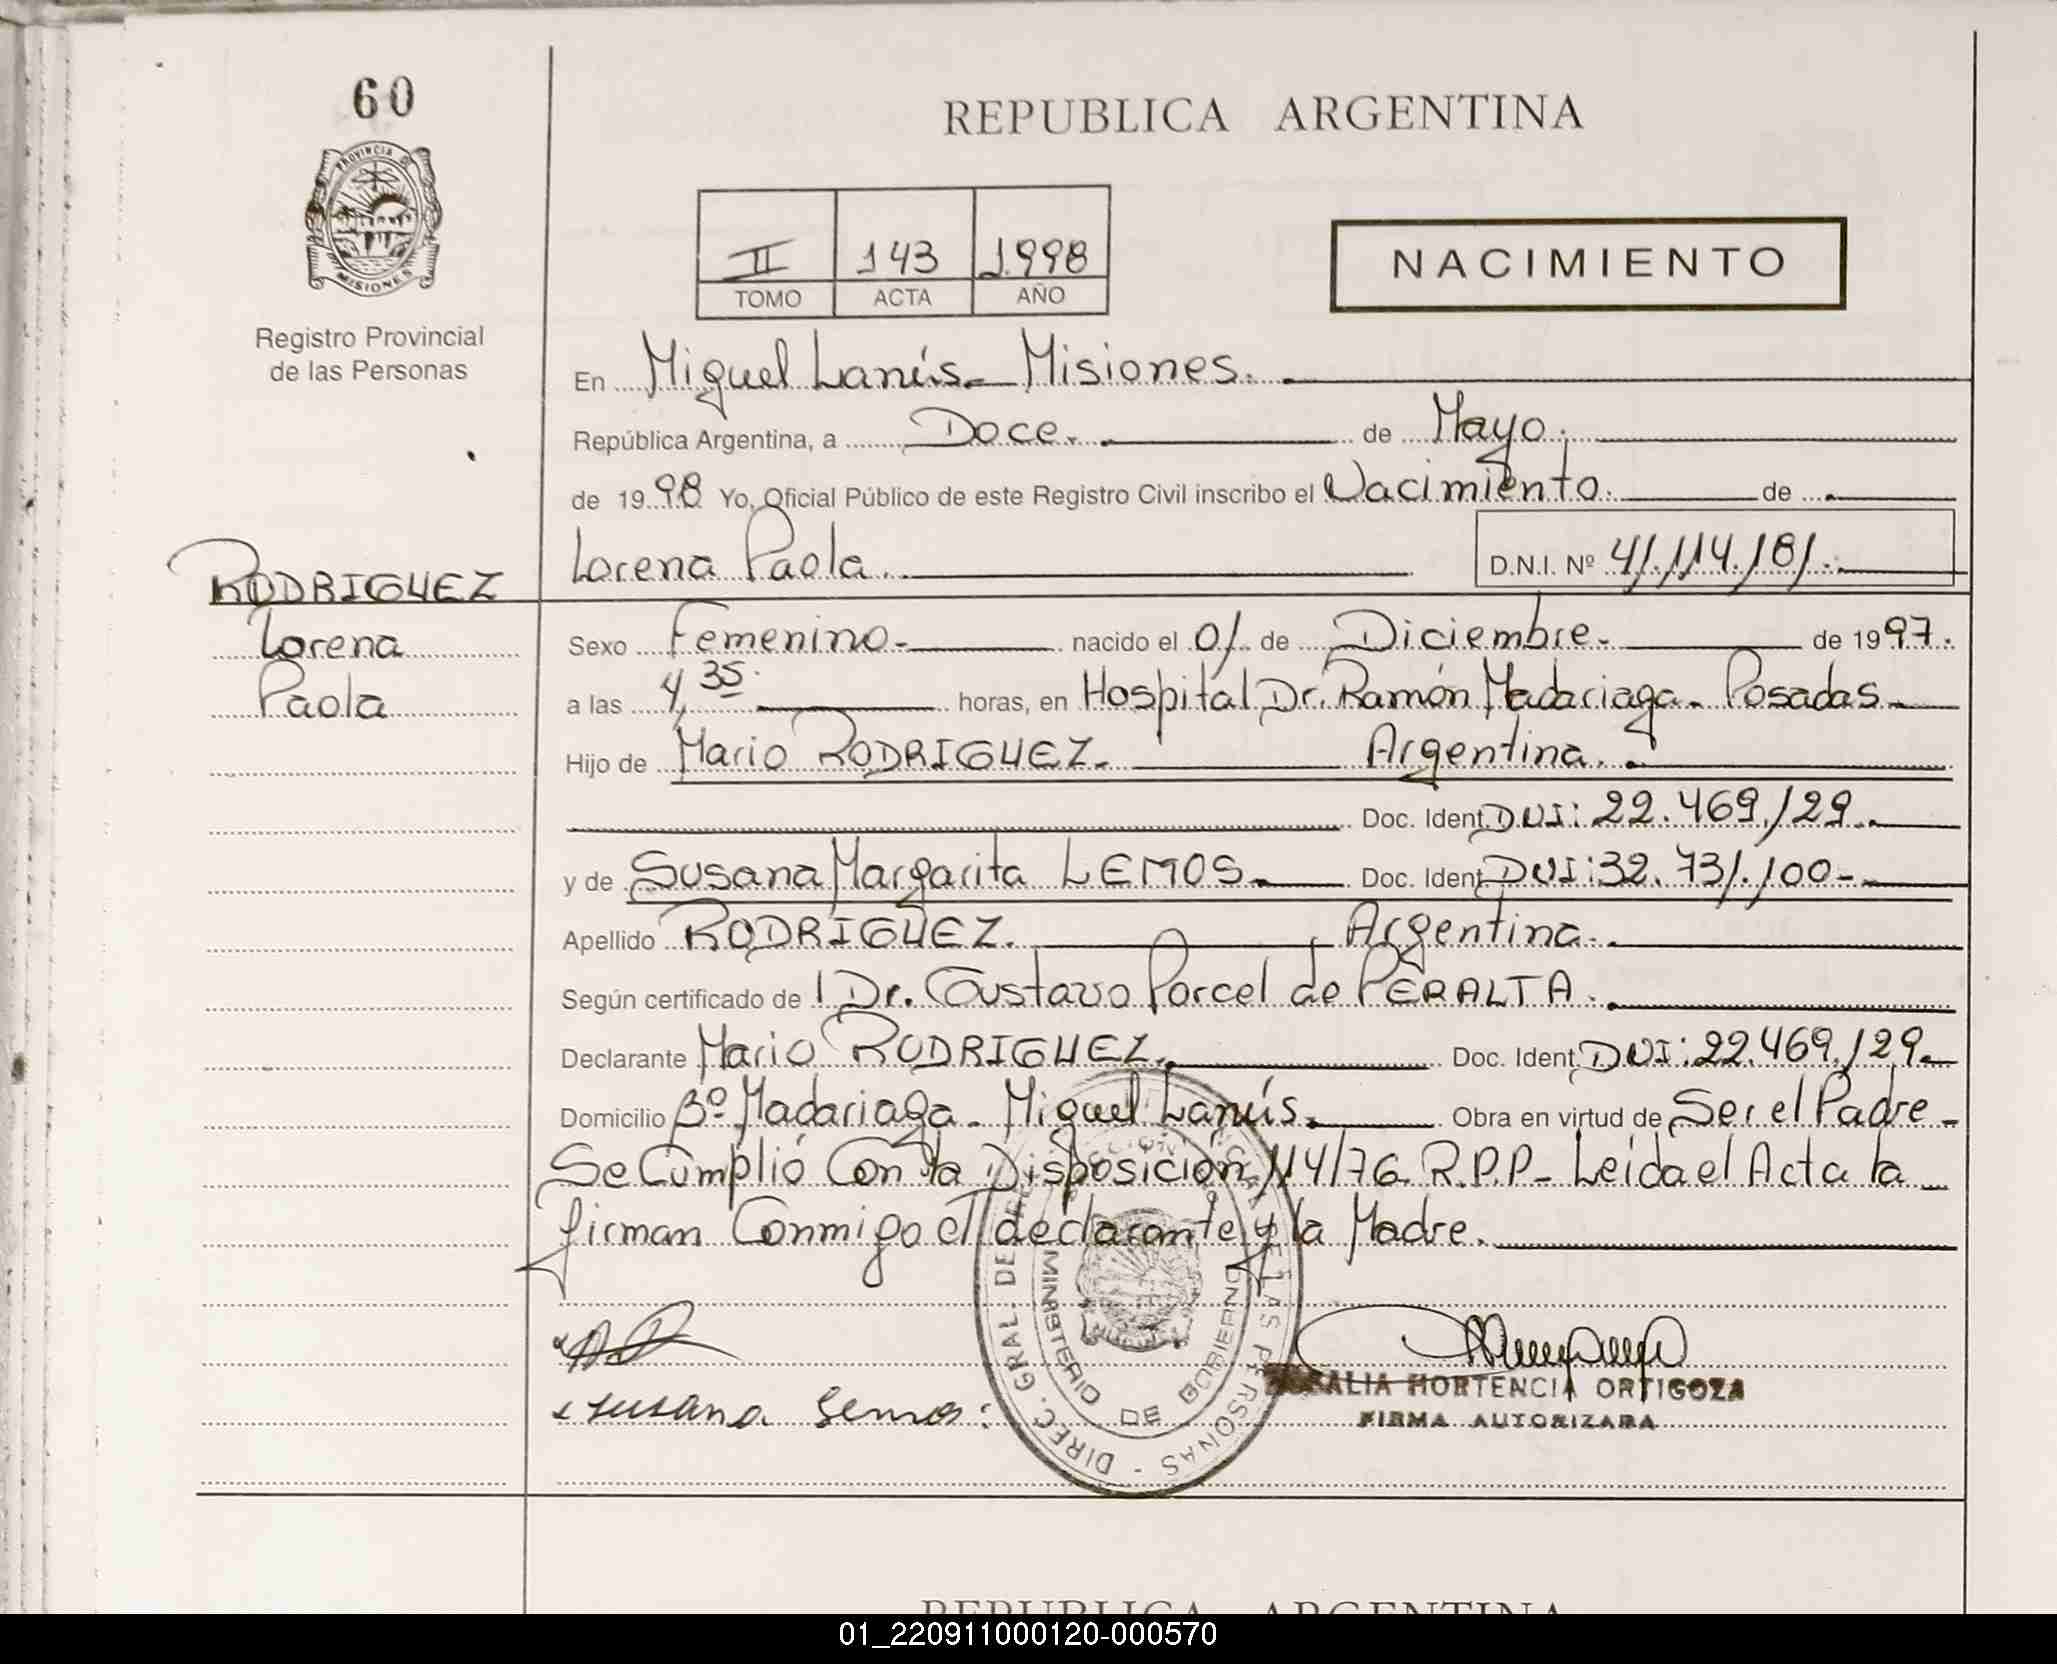 60
PROVINCIA DE
MISIONES
Registro Provincial
de las Personas
REPUBLICA ARGENTINA
II 143 1.998
TOMO ACTA AÑO
NACIMIENTO
En Miguel Lanús - Misiones.
República Argentina, a Doce. de Mayo.
de 1998 Yo, Oficial Público de este Registro Civil inscribo el Nacimiento. de
Lorena Paola. D.N.I. Nº 41.114.181.
RODRIGUEZ
Lorena
Paola
Sexo Femenino - nacido el 01 de Diciembre - de 1997.
a las 4,35 horas, en Hospital Dr. Ramón Madariaga - Posadas -
Hijo de Mario RODRIGUEZ - Argentina.
Doc. Ident. DNI: 22.469.129 -
y de Susana Margarita LEMOS - Doc. Ident. DNI: 32.731.100 -
Apellido RODRIGUEZ. Argentina -
Según certificado de Dr. Gustavo Porcel de PERALTA.
Declarante Mario RODRIGUEZ. Doc. Ident. DNI: 22.469.129 -
Domicilio Bº Madariaga - Miguel Lanús. Obra en virtud de Ser el Padre -
Se Cumplió Con la Disposición 114/76 R.P.P - Leída el Acta la
firman Conmigo el declarante y la Madre.
Susana Lemos
DIREC. GRAL. DE PERSONAS
MINISTERIO DE GOBIERNO
HORTENCIA ORTIGOZA
FIRMA AUTORIZADA
REPUBLICA ARGENTINA
01_220911000120-000570